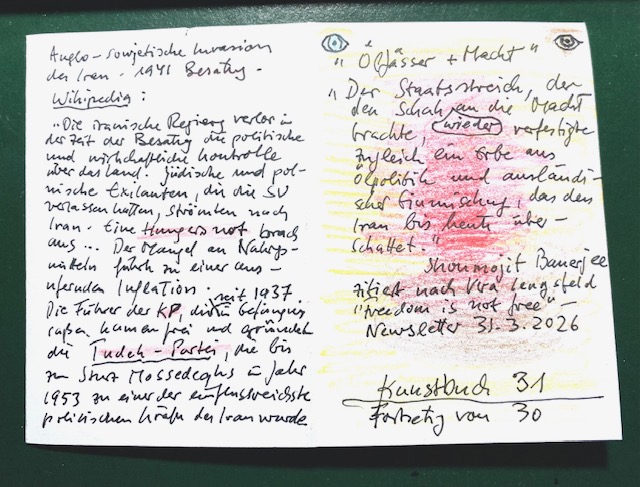 Anglo-sowjetische Invasion
des Iran - 1941 Besatzg.
Wikipedia:
"Die iranische Regierg verlor in
der Zeit der Besatzg die politische
und wirtschaftliche Kontrolle
über das Land. Jüdische und pol-
nische Exilanten, die die SU
verlassen hatten, strömten nach
Iran. Eine Hungersnot brach
aus... Der Mangel an Nahrgs-
mitteln führte zu einer aus-
ufernden Inflation.
Die Führer der KP, die seit 1937 im Gefängnis
saßen, kamen frei und gründeten
die Tudeh-Partei, die bis
zum Sturz Mossedeghs im Jahr
1953 zu einer der einflussreichsten
politischen Kräfte des Iran wurde
"Ölfässer + Macht"
"Der Staatsstreich, der
den Schah an die Macht
brachte, wieder verfestigte
zugleich ein Erbe aus
Ölpolitik und ausländi-
scher Einmischung, das den
Iran bis heute über-
schattet."
Shoumojit Banerjee
zitiert nach Vera Lengsfeld
"freedom is not free" -
Newsletter 31.3.2026
Kunstbuch 31
Fortsetzg von 30